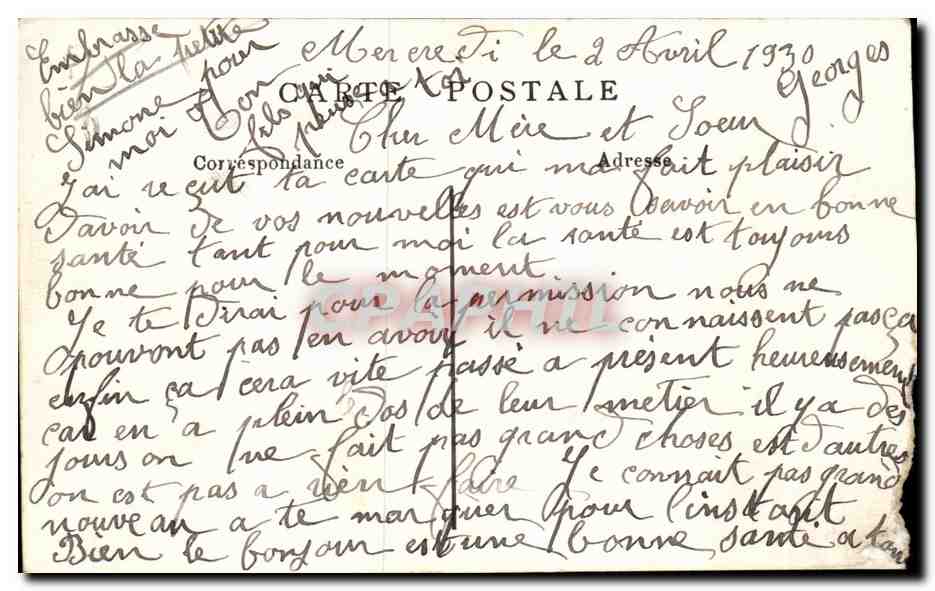 Mercredi le 2 Avril 1930
CARTE POSTALE
Cher Mère et Soeur
Correspondance
Adresse
J'ai reçut ta carte qui ma fait plaisir
d'avoir de vos nouvelles est vous savoir en bonne
santé tant pour moi la santé est toujours
bonne pour le moment
Je te dirai pour la permission nous ne
pouvont pas en avoir il ne connaissent pas ça
enfin ça cera vite passé a présent heureusement
car en a plein dos de leur métier il y a des
jours on ne fait pas grand choses est d'autres
on est pas a rien faire Je connait pas grand
nouveau a te marquer pour l'instant
Bien le bonjour est une bonne santé a tous
Embrasse
bien la petite
Simone pour
moi Ton
fils qui
pense a toi
Georges
CPAPHIL